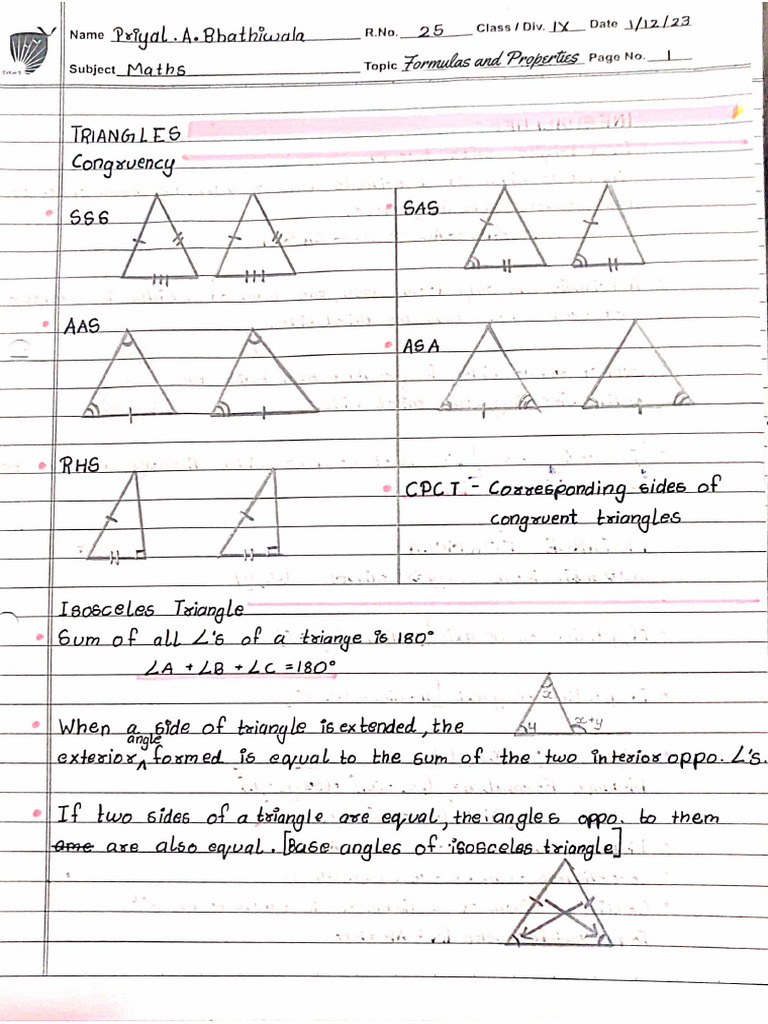 Name Priyal.A.Bhathiwala R.No. 25 Class / Div. IX Date 1/12/23
Subject Maths Topic Formulas and Properties Page No. 1
TRIANGLES
Congruency
SSS
SAS
AAS
ASA
RHS
CPCT - Corresponding sides of
congruent triangles
Isosceles Triangle
Sum of all ∠'s of a triange is 180°
∠A + ∠B + ∠C = 180°
x
y x+y
When a side of triangle is extended, the
angle
exterior ^ formed is equal to the sum of the two interior oppo. ∠'s.
If two sides of a triangle are equal, the angles oppo. to them
ame are also equal. [Base angles of isosceles triangle]